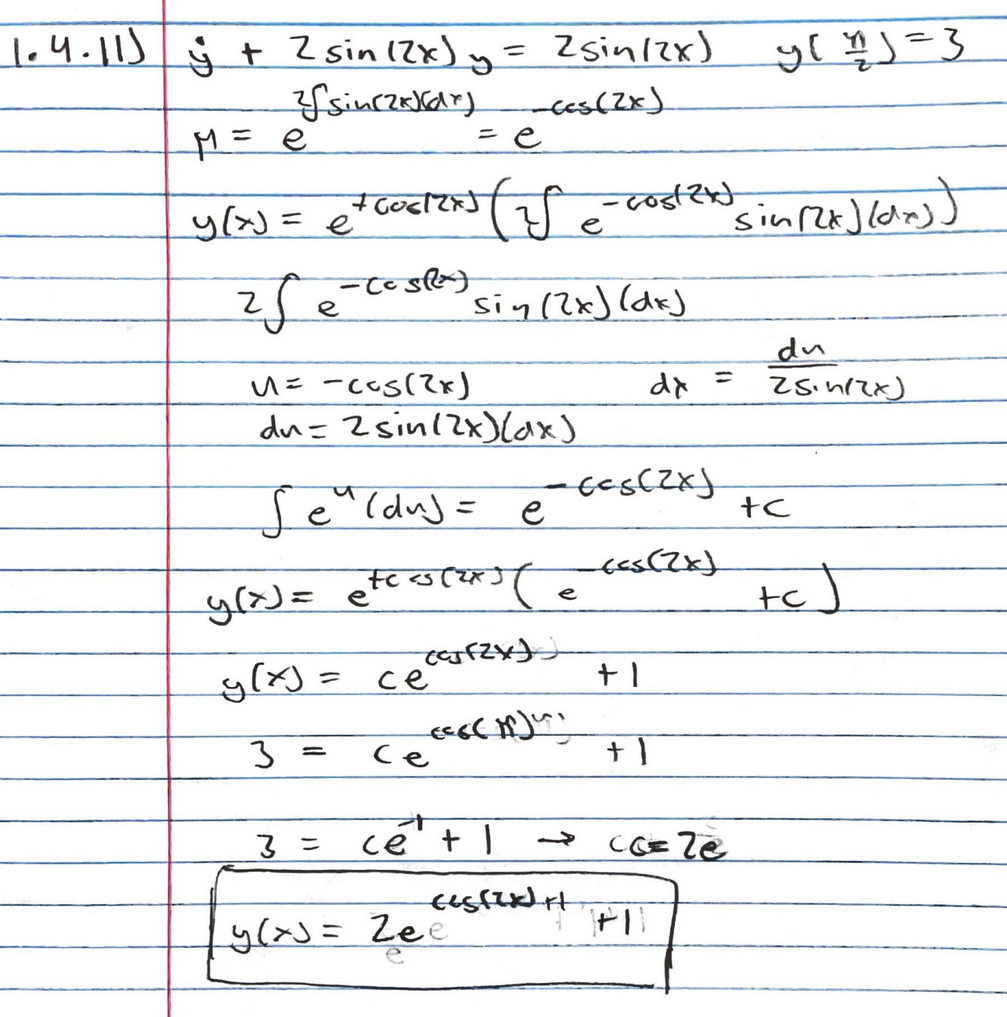 1.4.11) ẏ + 2sin(2x)y = 2sin(2x) y(π/2) = 3
μ = e^{2∫sin(2x)(dx)} = e^{-cos(2x)}
y(x) = e^{+cos(2x)} (2∫ e^{-cos(2x)} sin(2x)(dx))
2∫ e^{-cos(2x)} sin(2x)(dx)
u = -cos(2x) dx = du/2sin(2x)
du = 2sin(2x)(dx)
∫ e^u (du) = e^{-cos(2x)} +c
y(x) = e^{+cos(2x)} (e^{-cos(2x)} +c)
y(x) = ce^{cos(2x)} +1
3 = ce^{cos(π)} +1
3 = ce^{-1} + 1 → c = 2e
y(x) = 2e^{cos(2x)+1} +1